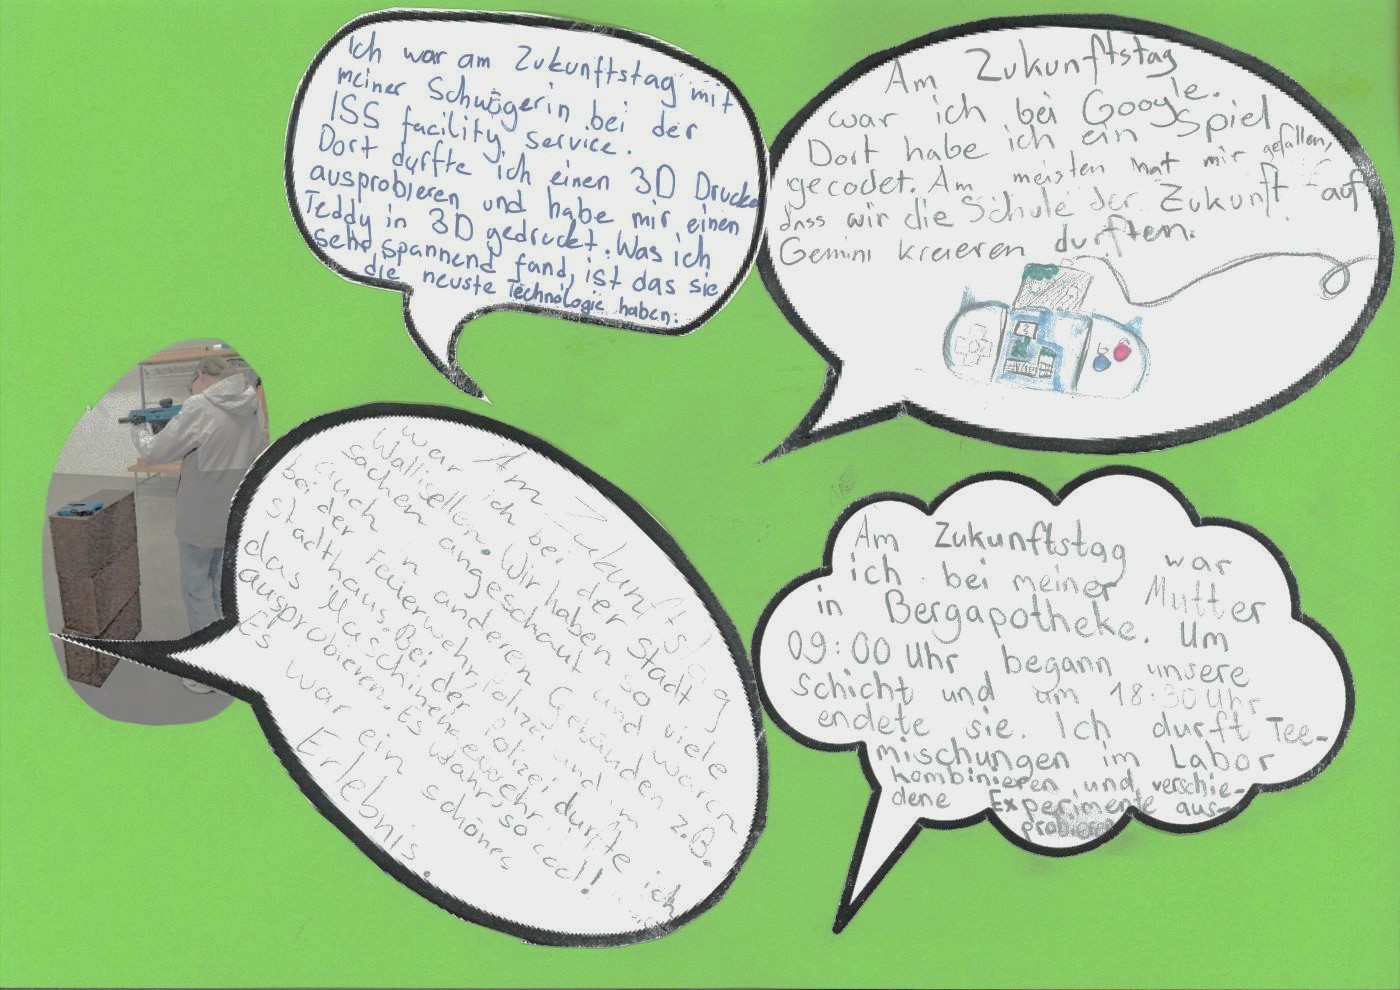 Ich war am Zukunftstag mit
meiner Schwägerin bei der
ISS facility service.
Dort durfte ich einen 3D Drucker
ausprobieren und habe mir einen
Teddy in 3D gedruckt. Was ich
sehr spannend fand, ist das sie
die neuste Technologie haben.
Am Zukunftstag
war ich bei Google.
Dort habe ich ein Spiel
gecodet. Am meisten hat mir gefallen,
dass wir die Schule der Zukunft auf
Gemini kreieren durften.
Am Zukunftstag
war ich bei der Stadt
Wallisellen. Wir haben so viele
sachen angeschaut und waren
auch in anderen Gebäuden z.B.
bei der Feierwehr, Polizei und im
Stadthaus. Bei der Polizei durfte ich
das Maschinengewehr
ausprobieren. Es wahr so cool!
Es war ein schönes
Erlebnis.
Am Zukunftstag war
ich bei meiner Mutter
in Bergapotheke. Um
09:00 Uhr begann unsere
Schicht und um 18:30 Uhr
endete sie. Ich durft Tee-
mischungen im Labor
kombinieren und verschie-
dene Experimente aus-
probieren